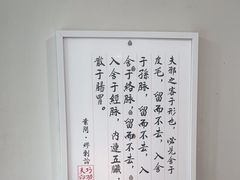 夫邪之客于形也，必先舍于
皮毛，留而不去，入舍
于孫脉，留而不去，入
舍于絡脉，留而不去，
入舍于經脉，内連五臟，
散于腸胃。
素問·繆刺論